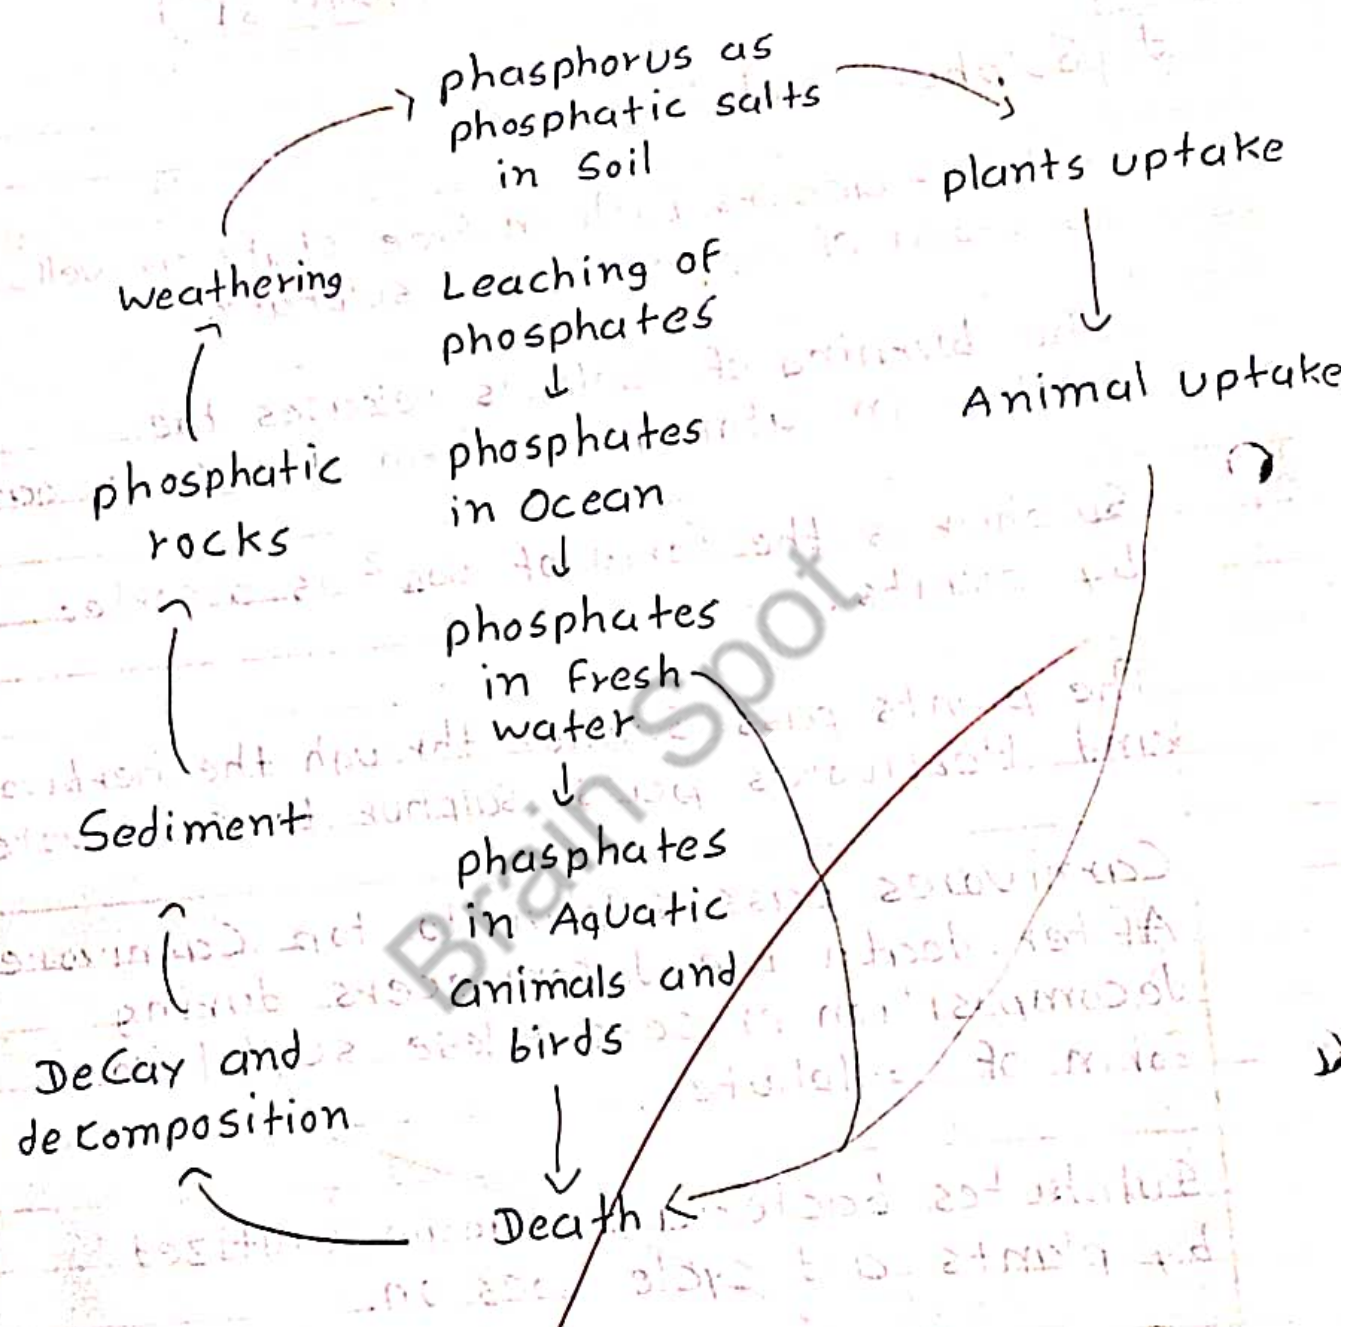 phasphorus as
phosphatic salts
in Soil
plants uptake
Weathering
Leaching of
phosphates
Animal uptake
phosphatic
rocks
phosphates
in Ocean
phosphates
in Fresh
water
Sediment
phasphates
in Aquatic
animals and
birds
Decay and
decomposition
Death
Brain Spot